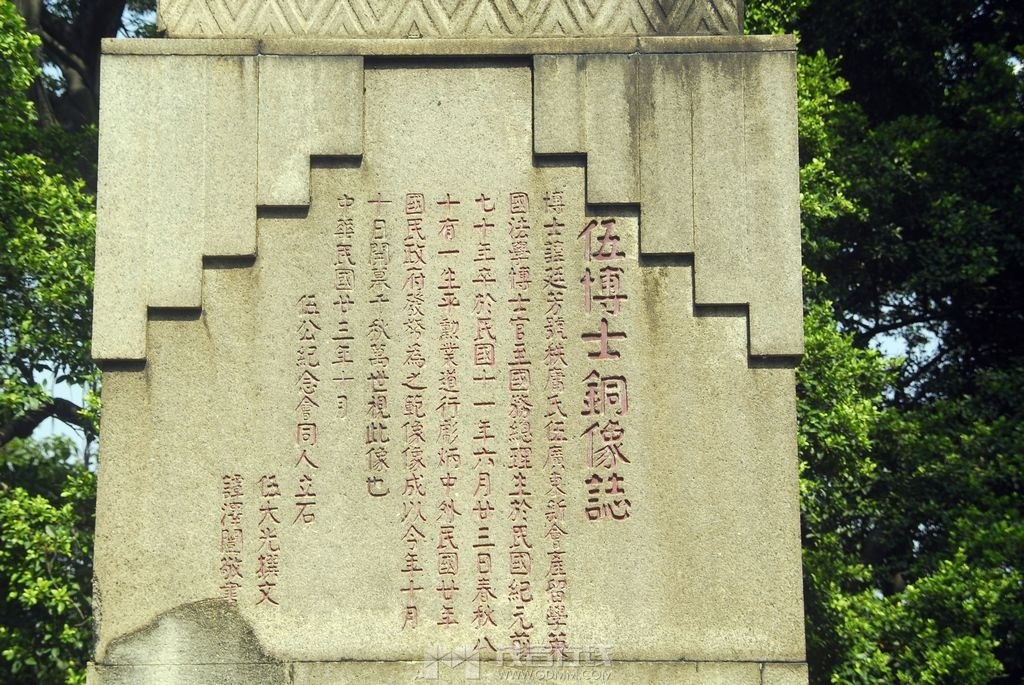 伍博士銅像誌
博士諱廷芳號秩庸氏伍廣東新會產留學英
國法學博士官至國務總理生於民國紀元前
七十年卒於民國十一年六月廿三日春秋八
十有一生平勳業道行彪炳中外民國廿年
國民政府發務為之範像像成以今年十月
十日開幕千秋萬世視此像也
中華民國廿三年十月
伍公紀念會同人立石
伍大光撰文
譚澤闓敬書
WWW.GDMM.COM